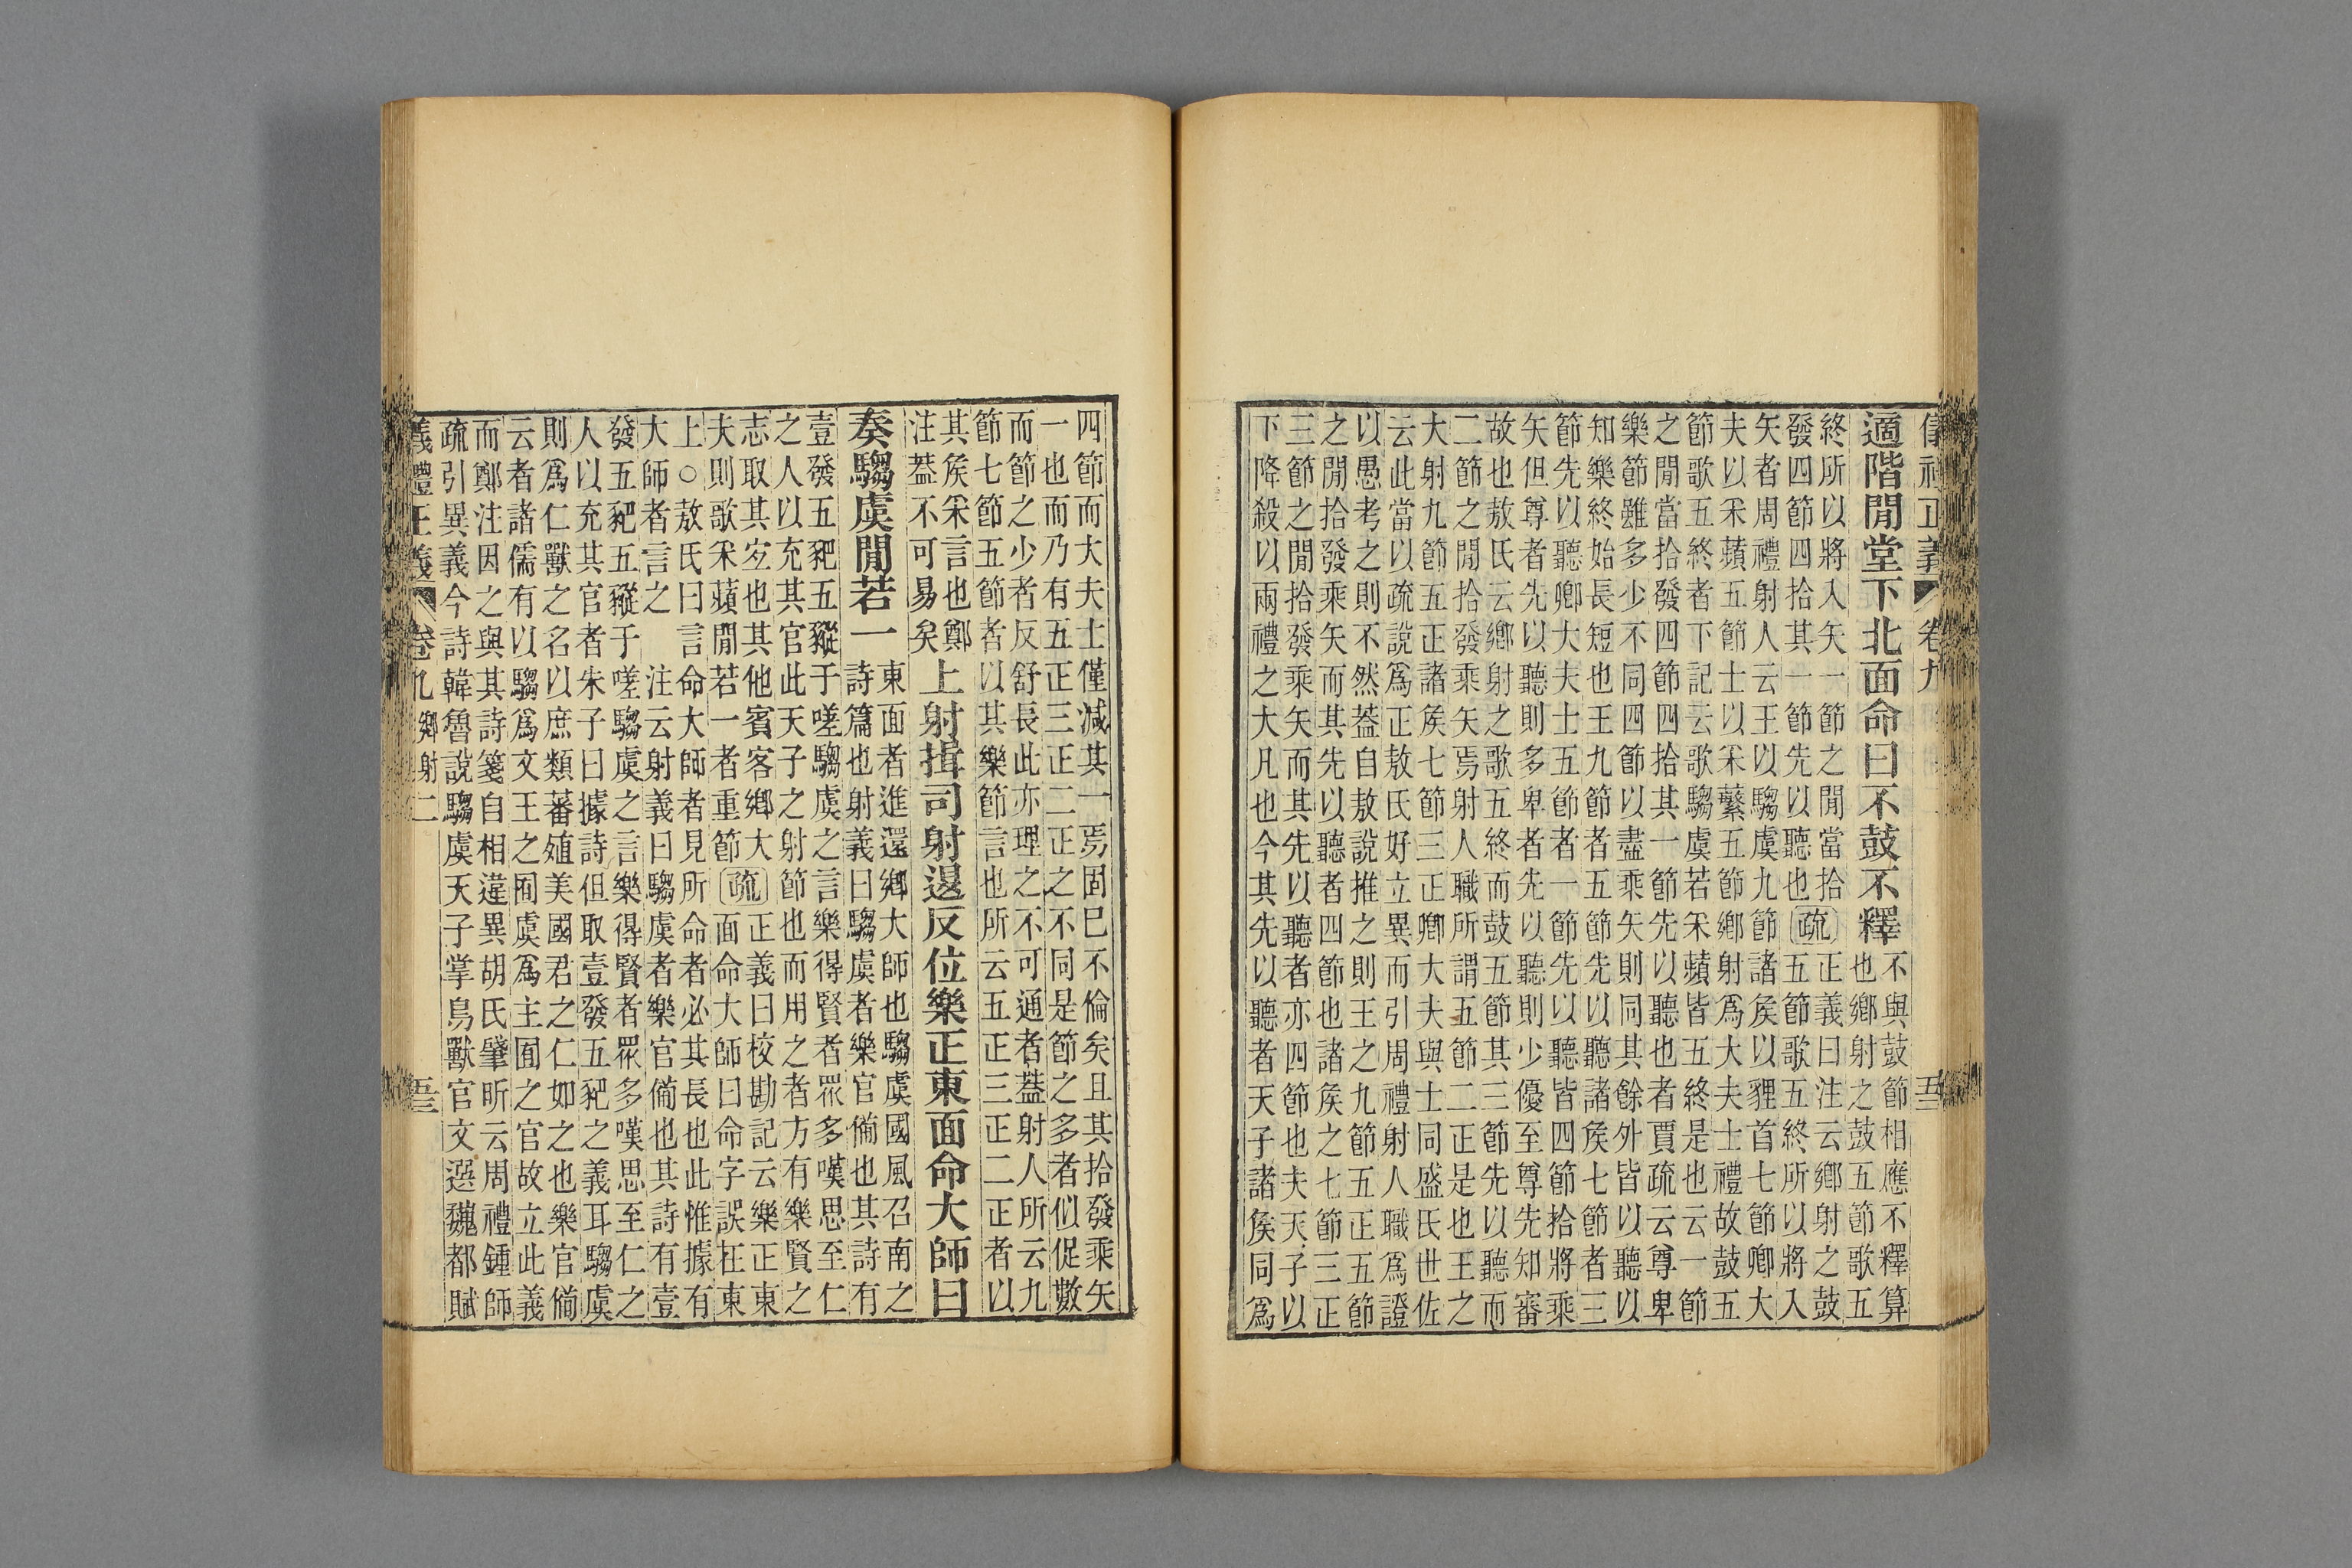 儀禮正義 卷九 五二
適階閒堂下北面命曰不鼓不釋
不與鼓節相應不釋算
也鄉射之鼓五節歌五
終所以將入矢一節之閒當拾
發四節四拾其一節先以聽也
疏
正義曰注云鄉射之鼓
五節歌五終所以將入
矢者周禮射人云王以騶虞九節諸矦以貍首七節卿大
夫以采蘋五節士以采蘩五節鄉射爲大夫士禮故鼓五
節歌五終者下記云歌騶虞若采蘋皆五終是也云一節
之閒當拾發四節四拾其一節先以聽也者賈疏云尊卑
樂節雖多少不同四節以盡乘矢則同其餘外皆以聽以
知樂終始長短也王九節者五節先以聽諸矦七節者三
節先以聽卿大夫士五節者一節先以聽皆四節拾將乘
矢但尊者先以聽則多卑者先以聽則少優至尊先知審
故也敖氏云鄉射之歌五終而鼓五節其三節先以聽而
二節之閒拾發乘矢焉射人職所謂五節二正是也王之
大射九節五正諸矦七節三正卿大夫與士同盛氏世佐
云此當以疏說爲正敖氏好立異而引周禮射人職爲證
以愚考之則不然葢自敖說推之則王之九節五正五節
之閒拾發乘矢而其先以聽者四節也諸矦之七節三正
三節之閒拾發乘矢而其先以聽者亦四節也夫天子以
下降殺以兩禮之大凡也今其先以聽者天子諸矦同爲
四節而大夫士僅減其一焉固巳不倫矣且其拾發乘矢
一也而乃有五正三正二正之不同是節之多者似促數
而節之少者反舒長此亦理之不可通者葢射人所云九
節七節五節者以其樂節言也所云五正三正二正者以
其矦采言也鄭
注葢不可易矣
上射揖司射退反位樂正東面命大師曰
奏騶虞閒若一
東面者進還鄉大師也騶虞國風召南之
詩篇也射義曰騶虞者樂官備也其詩有
壹發五豝五豵于嗟騶虞之言樂得賢者眾多嘆思至仁
之人以充其官此天子之射節也而用之者方有樂賢之
志取其宐也其他賓客鄉大
夫則歌采蘋閒若一者重節
疏
正義曰校勘記云樂正東
面命大師曰命字誤在東
上○敖氏曰言命大師者見所命者必其長也此惟據有
大師者言之 注云射義曰騶虞者樂官備也其詩有壹
發五豝五豵于嗟騶虞之言樂得賢者眾多嘆思至仁之
人以充其官者朱子曰據詩但取壹發五豝之義耳騶虞
則爲仁獸之名以庶類蕃殖美國君之仁如之也樂官備
云者諸儒有以騶爲文王之囿虞爲主囿之官故立此義
而鄭注因之與其詩箋自相違異胡氏肇昕云周禮鍾師
疏引異義今詩韓魯說騶虞天子掌鳥獸官文選魏都賦
儀禮正義 卷九 鄉射二 五三